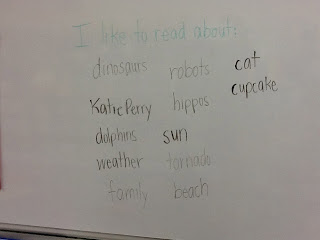 I like to read about:
dinosaurs robots cat
cupcake
Katie Perry hippos
dolphins sun
weather tornado
family beach